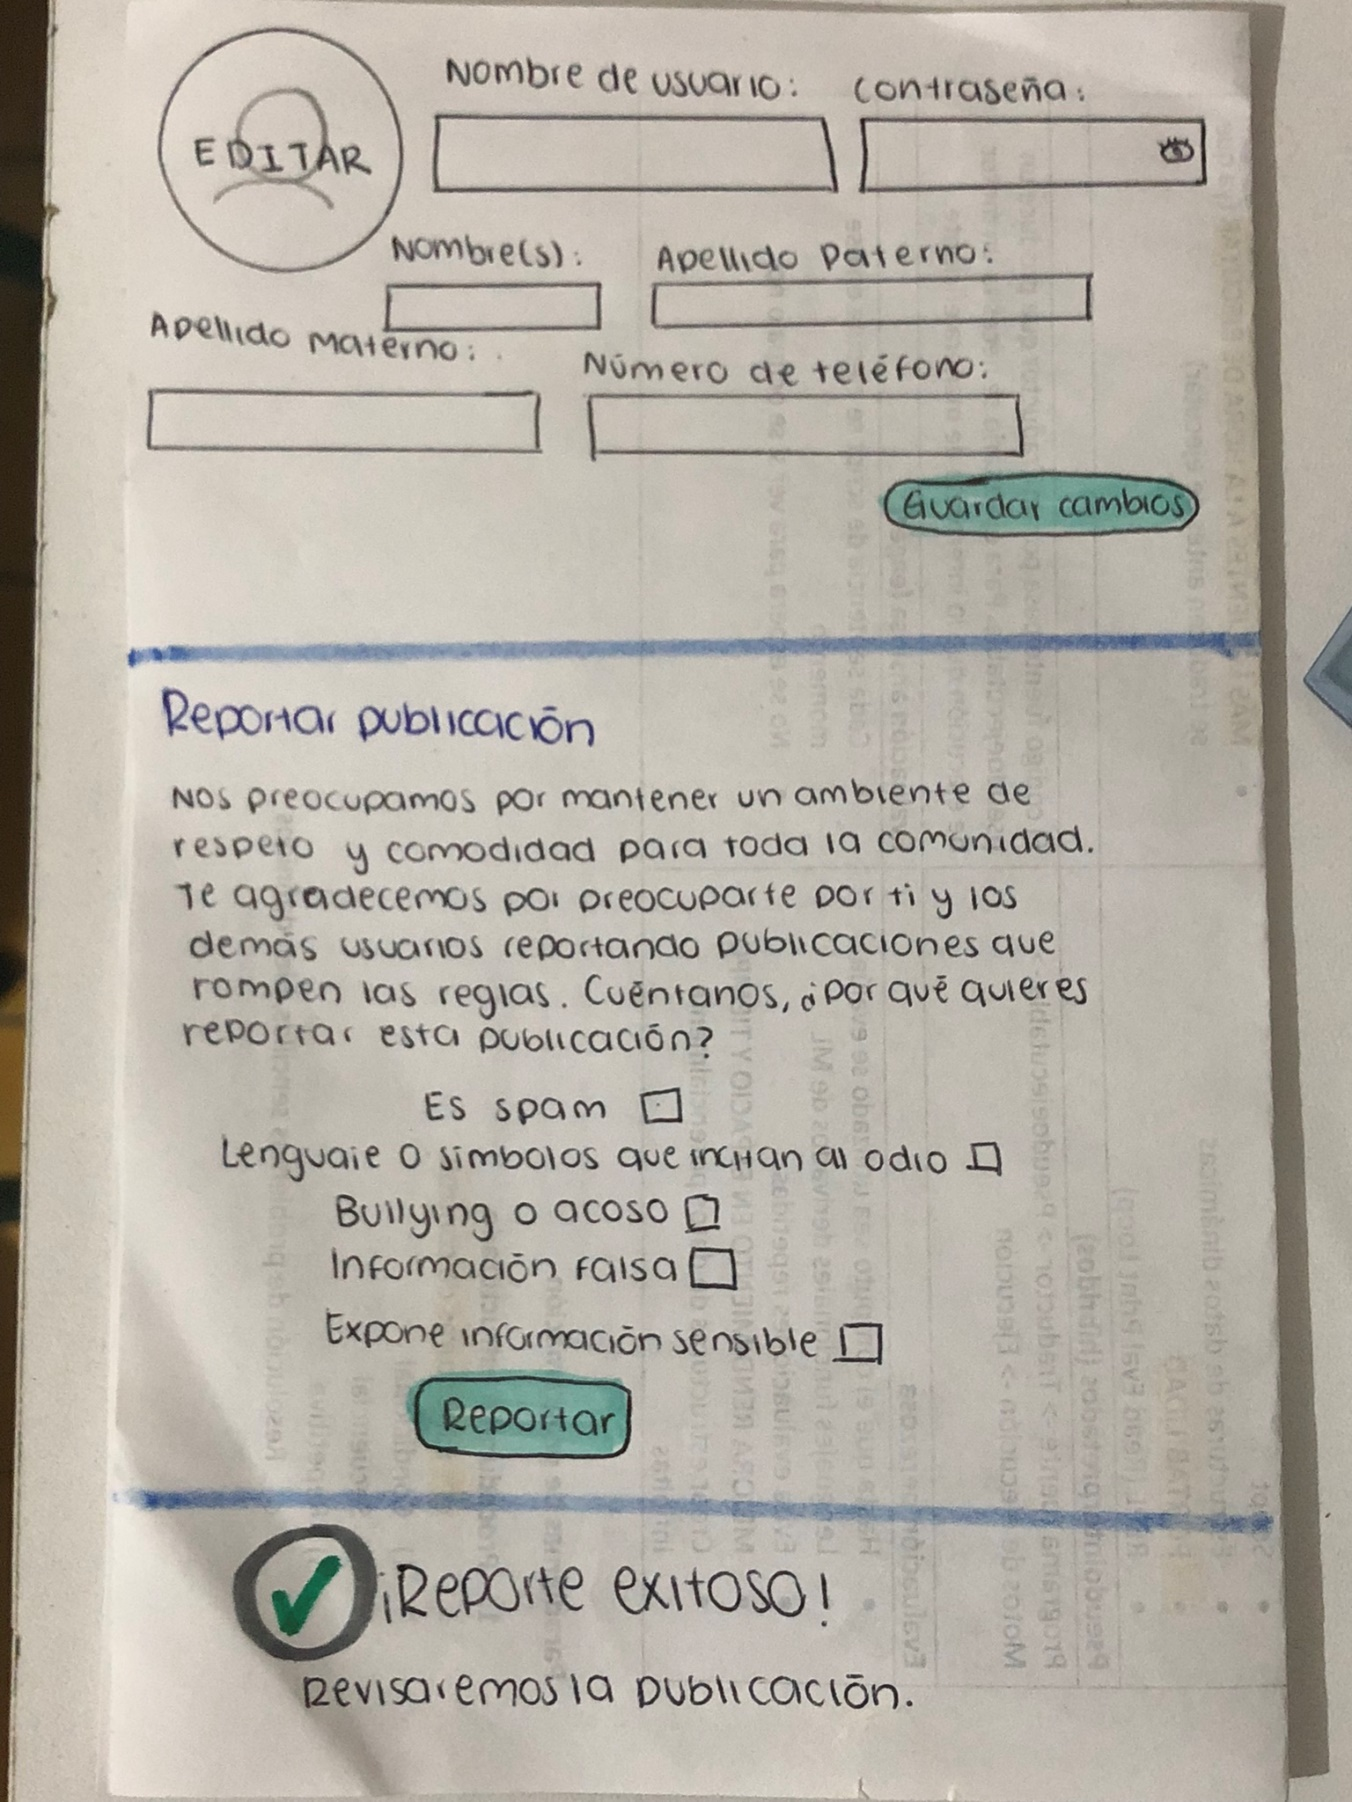 EDITAR
Nombre de usuario:
contraseña:
Nombre(s):
Apellido Paterno:
Apellido materno:
Número de teléfono:
Guardar cambios
Reportar publicación
Nos preocupamos por mantener un ambiente de
respeto y comodidad para toda la comunidad.
Te agradecemos por preocuparte por ti y los
demás usuarios reportando publicaciones que
rompen las reglas. Cuéntanos, ¿por qué quieres
reportar esta publicación?
Es spam
Lenguaje o simbolos que incitan al odio
Bullying o acoso
Información falsa
Expone información sensible
Reportar
¡Reporte exitoso!
Revisaremos la publicación.